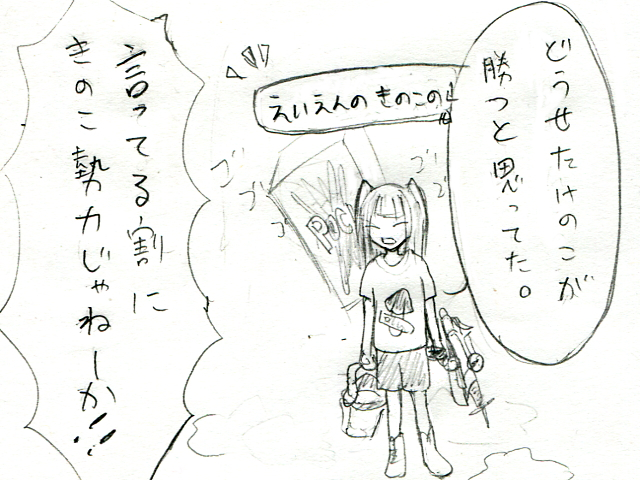 どうせたけのこが
勝つと思ってた。
えいえんのきのこの山
ゴゴゴ
ゴゴ
POC
言ってる割に
きのこ勢力じゃねーか!!